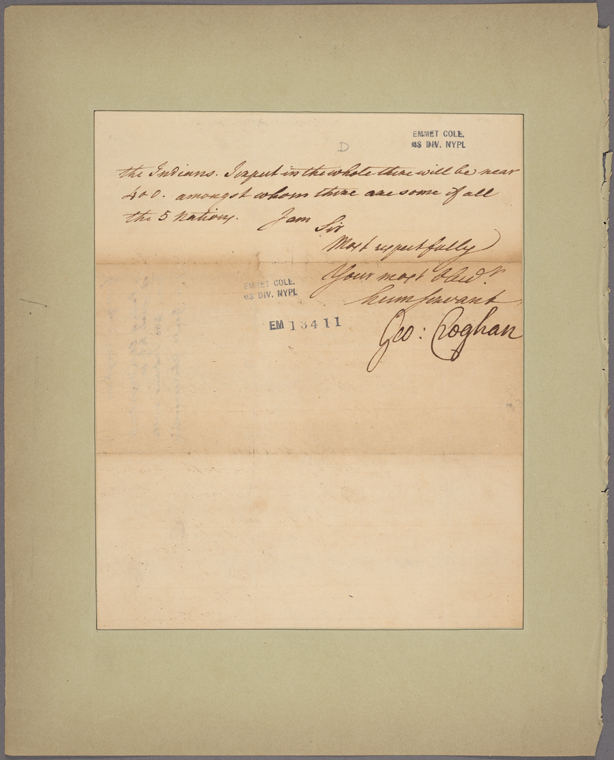 EMMET COLE,
MS DIV. NYPL
D
the Indians. I expect in the whole there will be near
400. amongst whom there are some of all
the 5 Nations. I am Sir
Most respectfully
Your most Obed.t
hum servant
EMMET COLE,
MS DIV. NYPL
EM 13411
Geo: Croghan